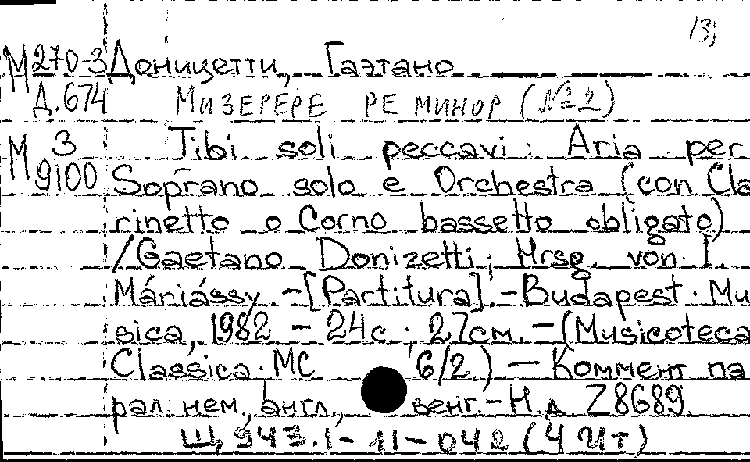 13)
М270-3 Доницетти, Гаэтано
Д.674 МИЗЕРЕРЕ РЕ МИНОР (№2)
М 3 Tibi soli peccavi: Aria per
9100 Soprano solo e Orchestra (con Cla
rinetto o Corno bassetto obligato)
/Gaetano Donizetti; Hrsg. von I.
Máriássy. -[Partitura]. -Budapest: Mu
sica, 1982 - 24с.; 27см. -(Musicoteca
Classica. MC 6/2.) - Коммент па
рал. нем., англ., венг. -Н.д. Z8689.
Ш5.943.1-11-042 (4 Ит)